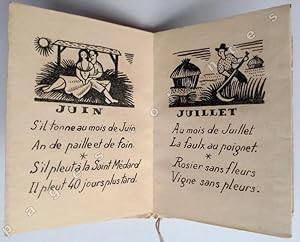 JUIN
S'il tonne au mois de Juin
An de paille et de foin.
*
S'il pleut à la Saint Médard
Il pleut 40 jours plus tard.
JUILLET
Au mois de Juillet
La faulx au poignet.
*
Rosier sans fleurs
Vigne sans pleurs.